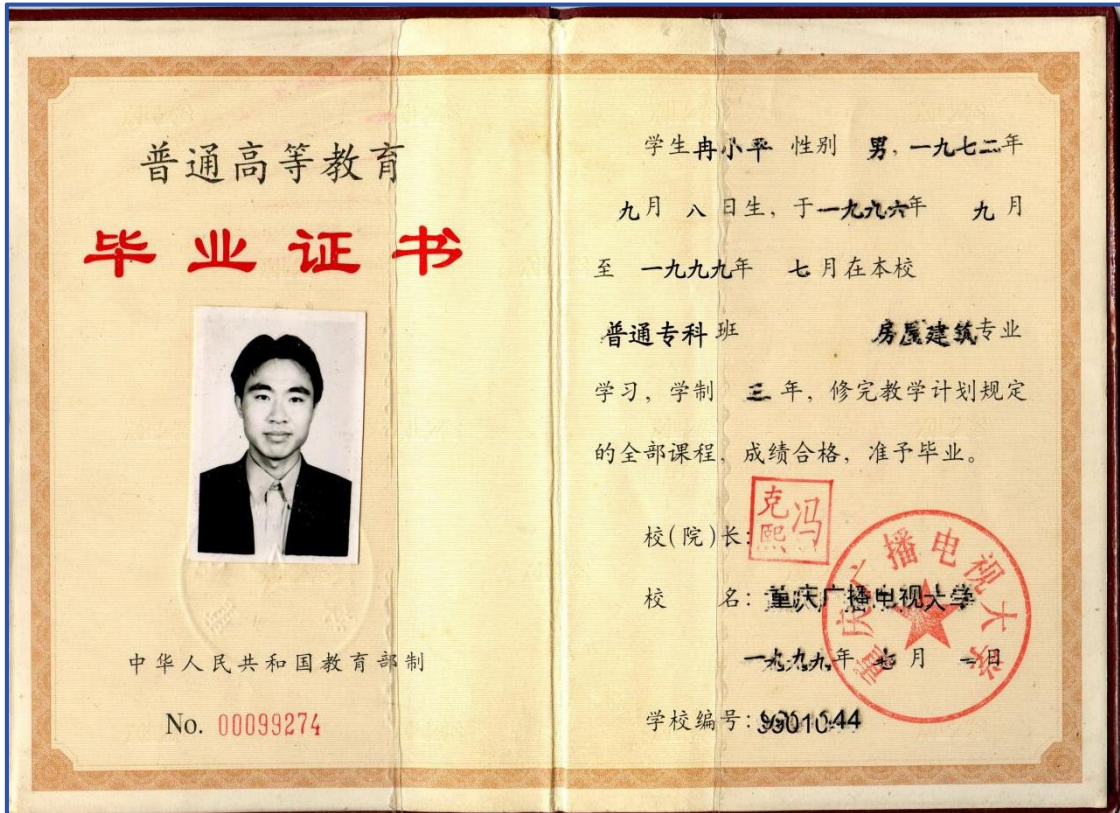 普通高等教育
毕业证书
中华人民共和国教育部制
No. 00099274
学生冉小平 性别 男，一九七二年
九月 八 日生，于一九九六年 九月
至 一九九九年 七月在本校
普通专科 班 房屋建筑专业
学习，学制 三 年，修完教学计划规定
的全部课程，成绩合格，准予毕业。
校(院)长：
冯克熙
校 名：重庆广播电视大学
一九九九年 七 月 一日
学校编号：9901044
重庆广播电视大学